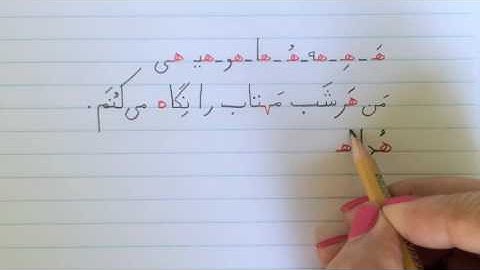 هَـ - هِـ - ـهه - هُـ - ها - هو - هیـ هی
مَن هَر شَب مَهتاب را نِگاه می‌کُنَم.